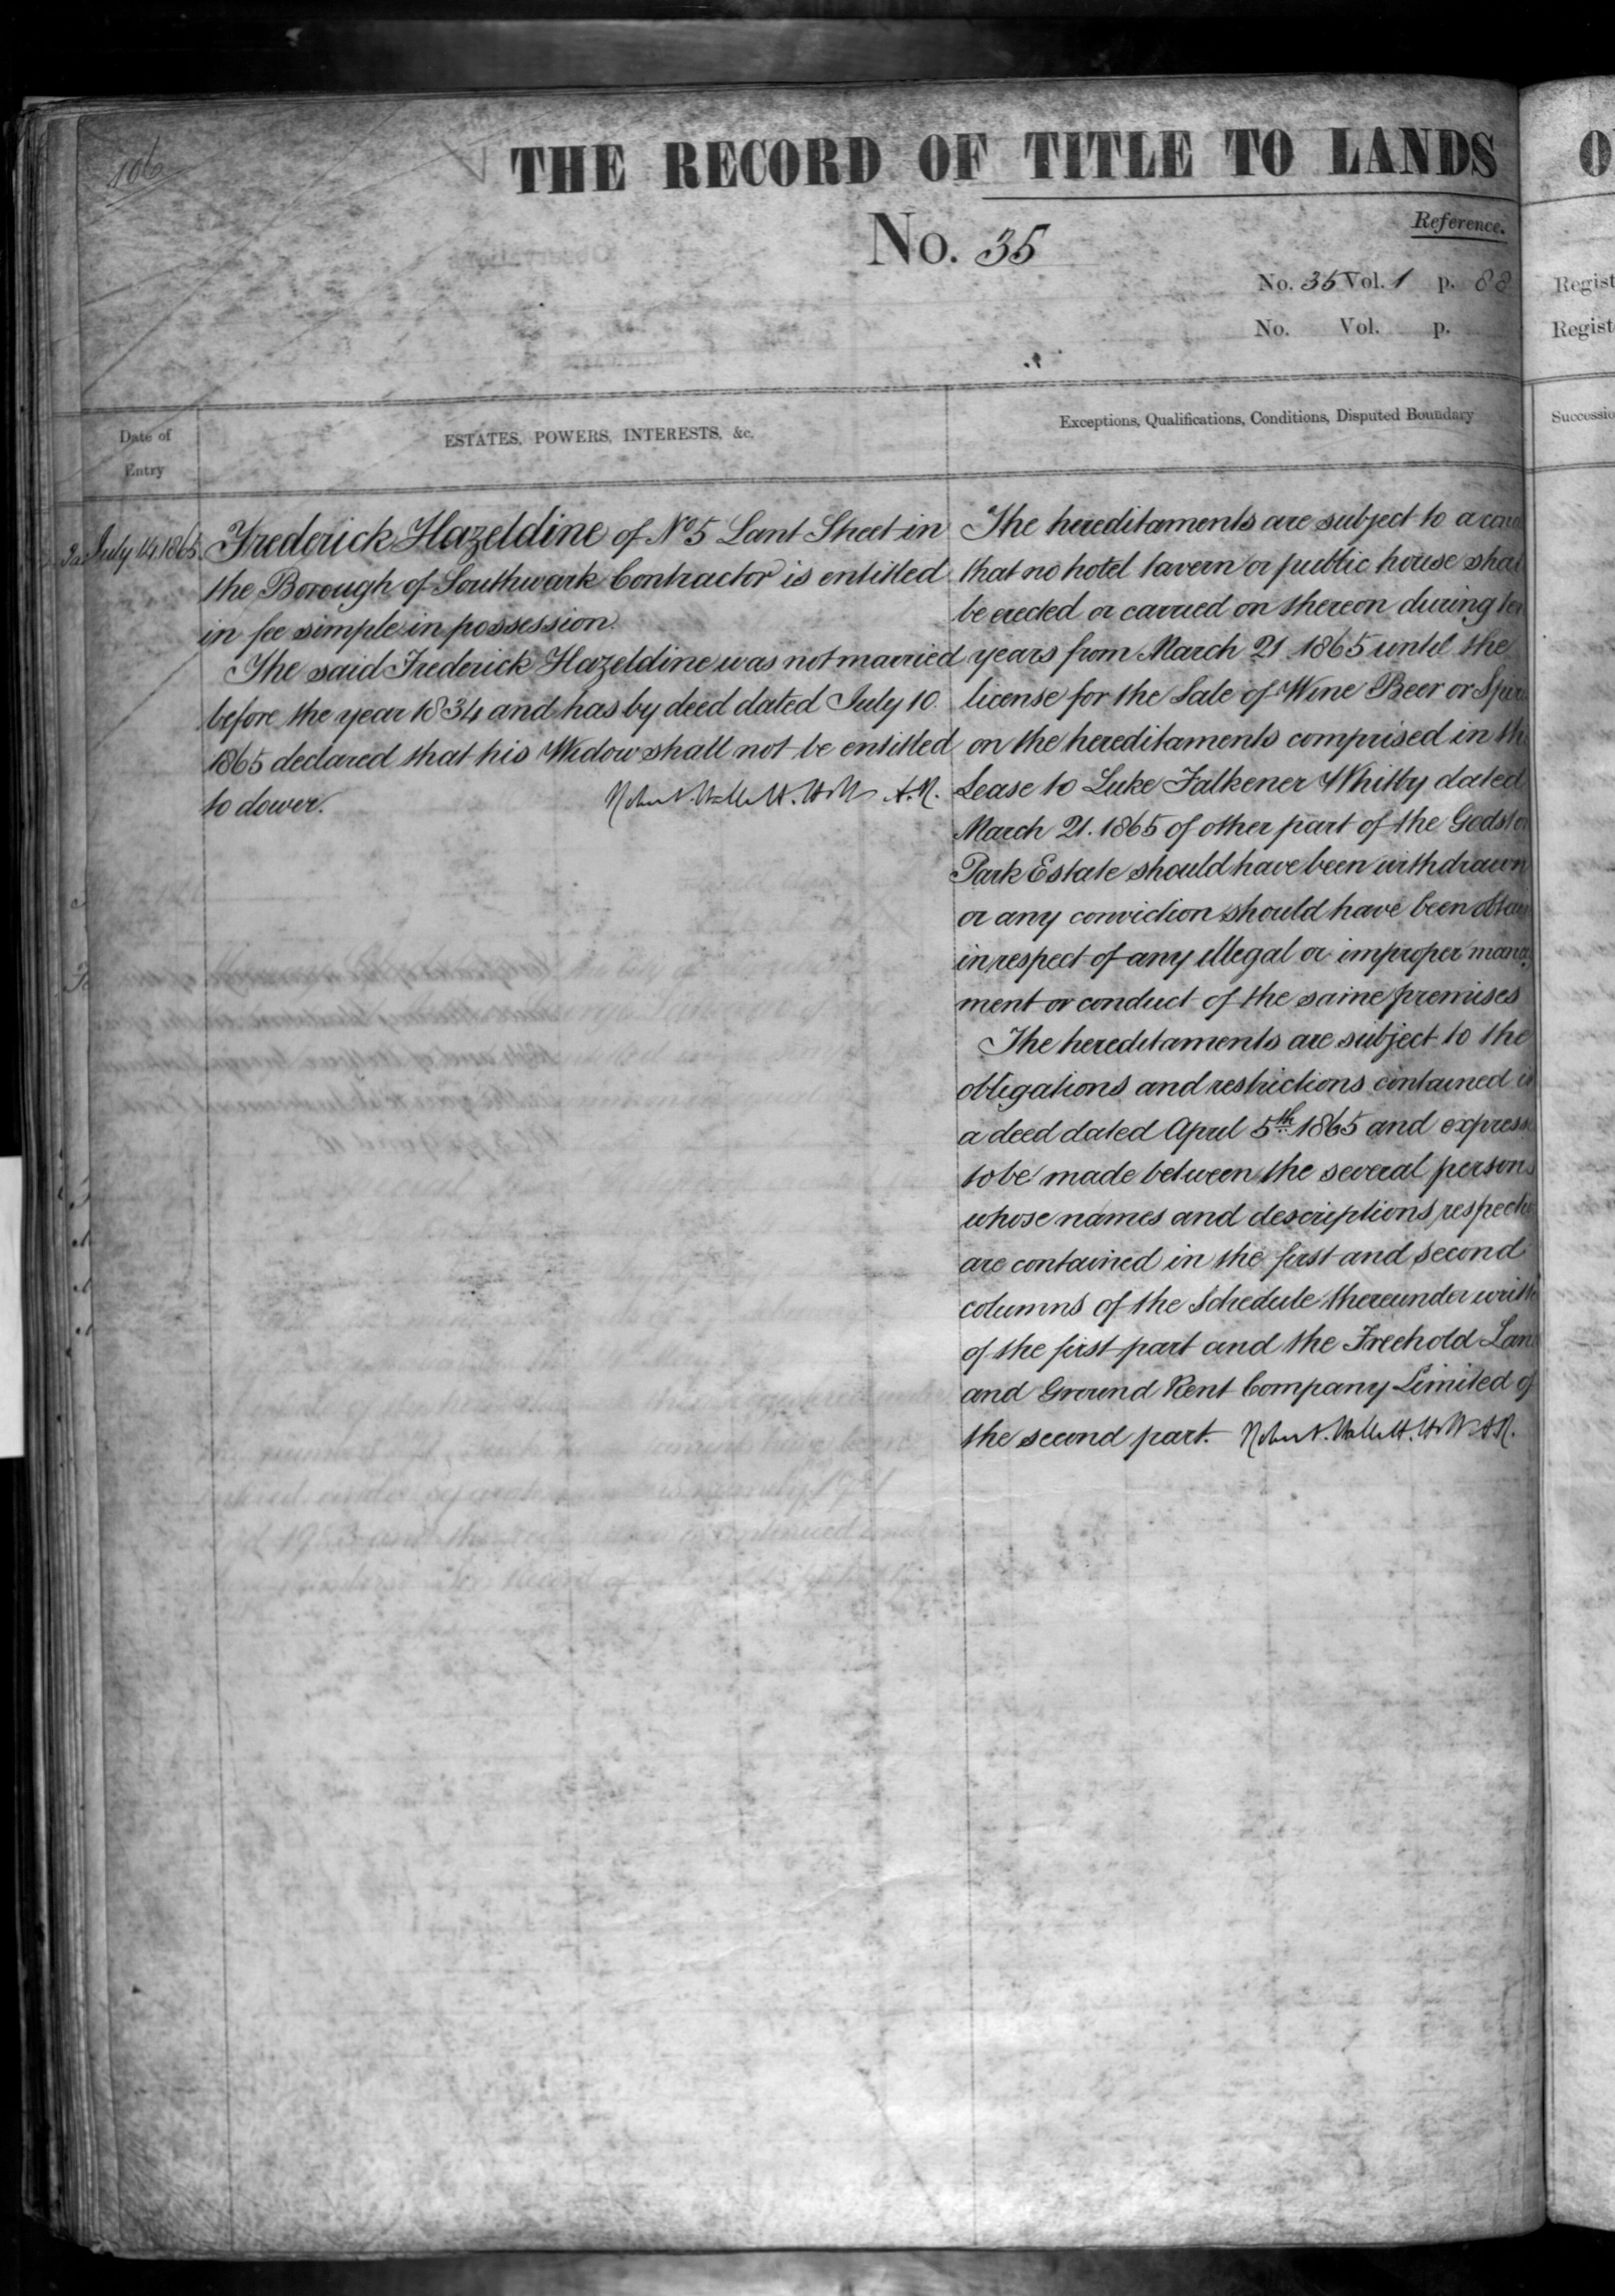 106
THE RECORD OF TITLE TO LANDS
No. 35
Reference.
No. 35 Vol. 1 p. 88
No. Vol. p.
Date of
Entry
ESTATES, POWERS, INTERESTS, &c.
Exceptions, Qualifications, Conditions, Disputed Boundary
July 14 1865
Frederick Hazeldine of No 5 Lant Street in
the Borough of Southwark Contractor is entitled
in fee simple in possession.
The said Frederick Hazeldine was not married
before the year 1834 and has by deed dated July 10.
1865 declared that his Widow shall not be entitled
to dower. A.R.
The hereditaments are subject to a
that no hotel tavern or public house shal
be erected or carried on thereon during
years from March 21 1865 until the
license for the Sale of Wine Beer or
on the hereditaments comprised in th
Lease to Luke Falkener Whitby dated
March 21. 1865 of other part of the Godsto
Park Estate should have been withdrawn
or any conviction should have been obtain
in respect of any illegal or improper manag
ment or conduct of the same premises
The hereditaments are subject to the
obligations and restrictions contained i
a deed dated April 5th 1865 and express
to be made between the several persons
whose names and descriptions respect
are contained in the first and second
columns of the Schedule thereunder writt
of the first part and the Freehold Lan
and Ground Rent Company Limited of
the second part. A.R.
O
Regist
Regist
Successio